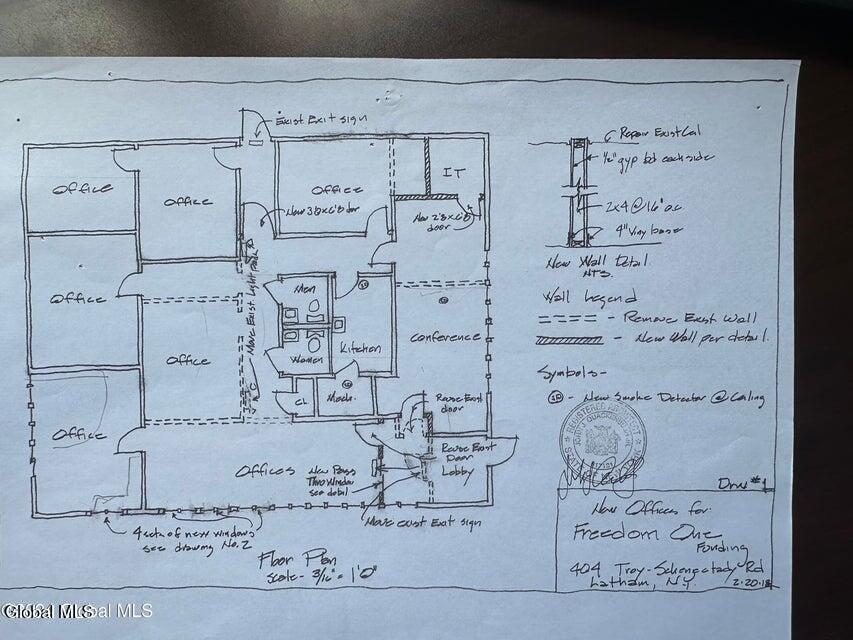 Exist Exit sign
Office
Office
Office
IT
New 3'0x6'8 door
New 2'8x6'8
door
Office
Men
Move Exist Light
Women
Kitchen
Conference
Office
CL
Mech.
Office
Offices
New Pass
Thru Window
see detail
Reuse Exist
door
Reuse Exist
Door
Lobby
Move exist Exit sign
4 sets of new windows
see drawing No. 2
Floor Plan
Scale - 3/16" = 1'0"
Repair Exist Ceil
1/2" gyp bd each side
2x4 @ 16" o.c
4" Vinyl base
New Wall Detail
NTS.
Wall Legend
- Remove Exist Wall
- New Wall per detail.
Symbols -
SD - New Smoke Detector @ Ceiling
REGISTERED ARCHITECT
Drw #1
New Offices for:
Freedom One
Funding
404 Troy-Schenectady Rd
Latham, N.Y.
2-20-18
Global MLS